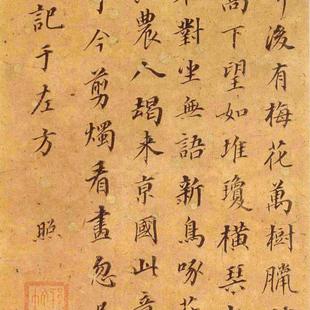 後有梅花萬樹臘
高下望如堆瓊橫琴
對坐無語新鳥啄花
農八来京國此
今剪燭看畫忽
記于左方
照